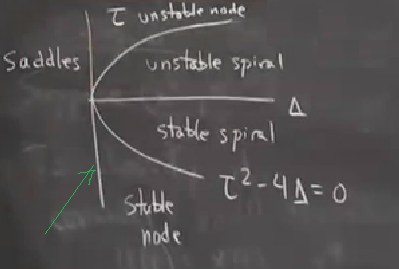 τ unstable node
Saddles
unstable spiral
Δ
stable spiral
τ²-4Δ=0
stable
node